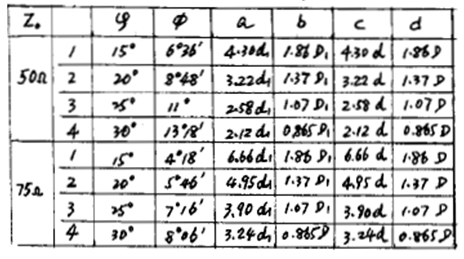 Z₀ φ ϕ a b c d
50Ω 1 15° 6°36′ 4.30d₁ 1.86 D₁ 4.30 d 1.86 D
2 20° 8°48′ 3.22d₁ 1.37 D₁ 3.22 d 1.37 D
3 25° 11° 2.58d₁ 1.07 D₁ 2.58 d 1.07 D
4 30° 13°18′ 2.12 d₁ 0.865 D₁ 2.12 d 0.865 D
75Ω 1 15° 4°18′ 6.66d₁ 1.86 D₁ 6.66 d 1.86 D
2 20° 5°46′ 4.95d₁ 1.37 D₁ 4.95 d 1.37 D
3 25° 7°16′ 3.90d₁ 1.07 D₁ 3.90d 1.07 D
4 30° 8°06′ 3.24d₁ 0.865D 3.24d 0.865 D